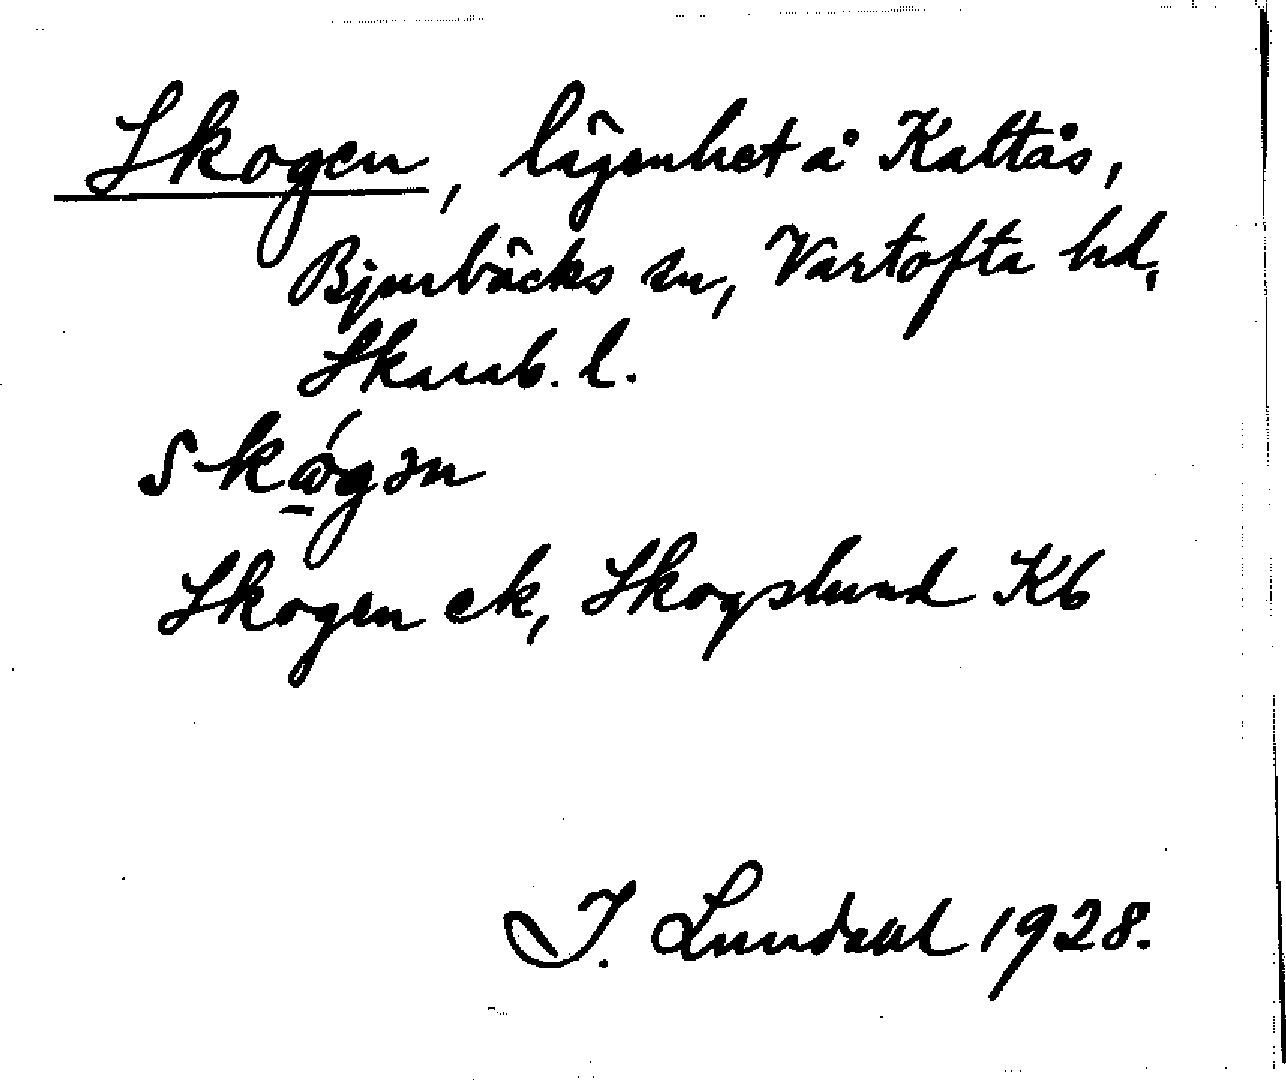 Skogen, lägenhet å Kaltås,
Bjurbäcks sn, Vartofta hd,
Skarab. l.
skógən
Skogen ek, Skogslund Kb
I. Lundahl 1928.